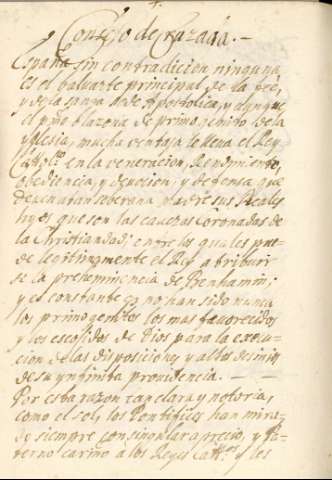 Consejo de Cruzada.
España sin contradicion ninguna
es el baluarte principal de la feè,
y de la sancta sede Apostolica, y aunque
el otro blazona de primogenito de la
yglesia, mucha ventaja le lleva el Rey
Cattco. en la veneracion, Rendimiento,
obediencia, y devocion, y defensa que
deven a tan soberana Madre sus Reales
hijos que son las cauezas Coronadas de
la Christiandad; entre los quales pue-
de legitimamente el Rey atribuir
se la preheminencia de Benhamin;
y es constante q̃ no han sido nunca
los primogenitos los mas favorecidos
y los escojidos de Dios para la execu-
cion de las disposiciones y altos desinios
de su ynfinita providencia.
Por esta razon tan clara y notoria,
como el sol, los Pontifices han mira-
do siempre con singular aprecio, y Pa-
terno cariño a los Reyes Cattcos. y les